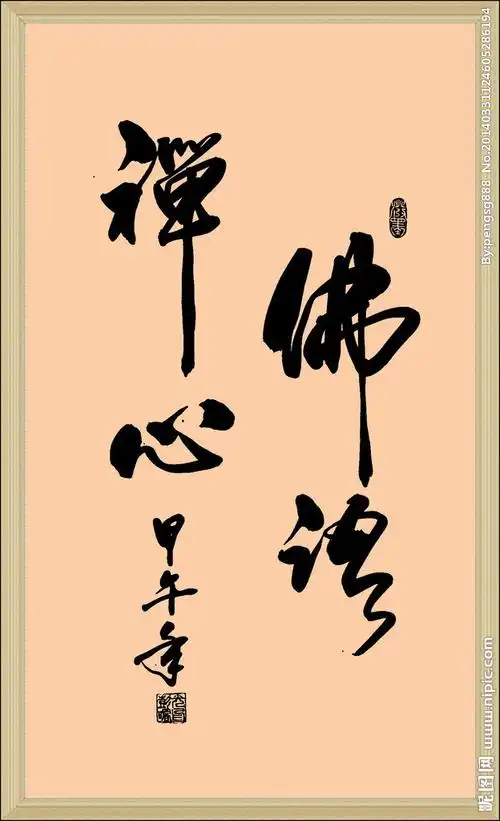 佛语
禅心
甲午年
By:pengsg888 No.20140331124605286194
昵图网 www.nipic.com